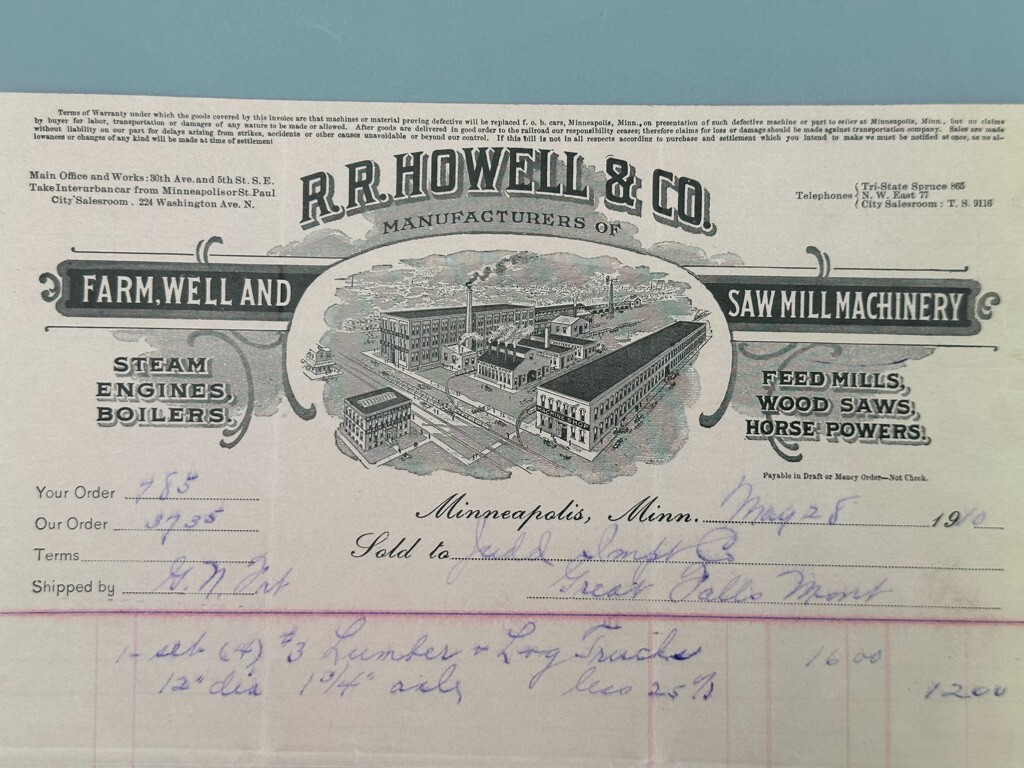 Terms of Warranty under which the goods covered by this invoice are that machines or material proving defective will be replaced f. o. b. cars, Minneapolis, Minn., on presentation of such defective machine or part to seller at Minneapolis, Minn, but no claims
by buyer for labor, transportation or damages of any nature to be made or allowed. After goods are delivered in good order to the railroad our responsibility ceases; therefore claims for loss or damage should be made against transportation company. Sales are made
without liability on our part for delays arising from strikes, accidents or other causes unavoidable or beyond our control. If this bill is not in all respects according to purchase and settlement which you intend to make we must be notified at once, as no al-
lowances or changes of any kind will be made at time of settlement
Main Office and Works: 30th Ave. and 5th St. S. E.
Take Interurban car from Minneapolis or St. Paul
City Salesroom. 224 Washington Ave. N.
R.R. HOWELL & CO.
Telephones Tri-State Spruce 865
N. W. East 77
City Salesroom: T. S. 9116
MANUFACTURERS OF
FARM, WELL AND
SAW MILL MACHINERY
STEAM
ENGINES,
BOILERS.
FEED MILLS,
WOOD SAWS,
HORSE POWERS.
MACHINE SHOP
Payable in Draft or Money Order—Not Check.
Your Order 785
Our Order 3735
Terms
Shipped by G. N. Frt
Minneapolis, Minn. May 28 1910
Sold to Judd Impt Co
Great Falls Mont
1- set (4) #3 Lumber & Log Trucks 16 00
12" dia 1 3/4" axle less 25% 12 00